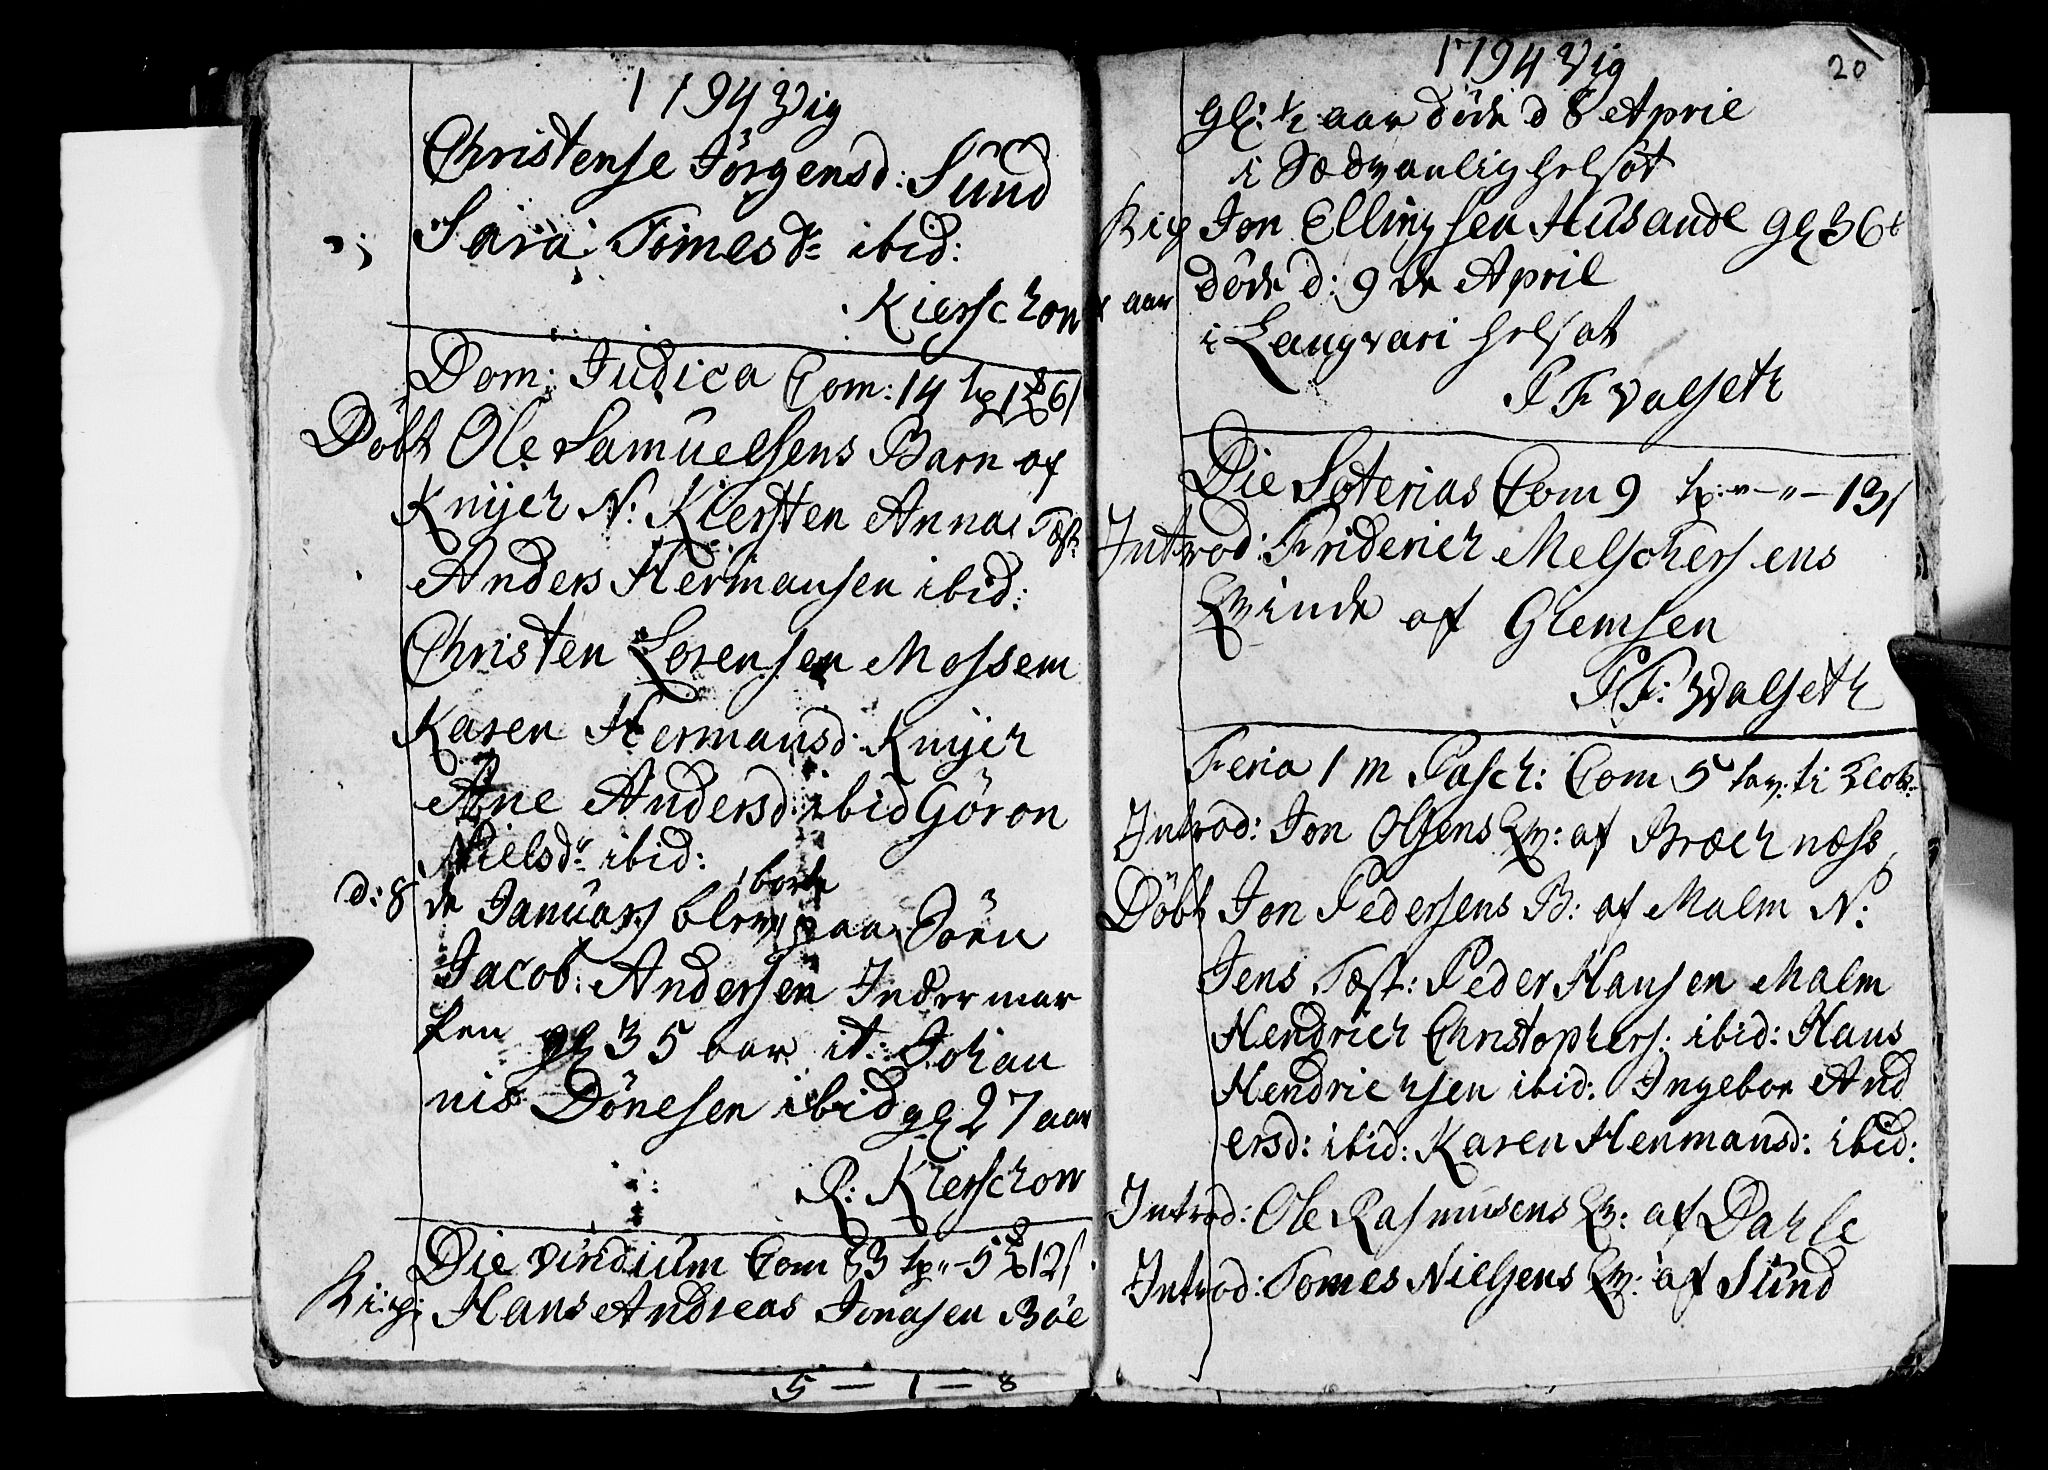 1794 Vig
Christense Jörgensd: Sund
Sara Tomesdr ibid:
Kierschow
Dom: Judica Com: 14
Döbt Ole Samuelsens Barn af
Knych N: Kiersten Anna Test:
Anders Hermansen ibid:
Christen Lorensen Mossem
Karen Hermansd: Knych
Ane Andersd: ibid Göron
Nielsdr ibid:
borte
d: 8 de Januarj blev paa Söen
Jacob Andersen Indermar
ken gl 35 aar it: Johan
nis Dönesen ibid gl 27 aar
R: Kierschow
Die viridium Com 83
Hans Andreas Jonasen Böe
5 — 1 — 8
20
1794 Vig
gl: 1/2 aar döde d 8 April
i Sædvanlig helsöt
Jon Ellingsen Husande gl 36
aar döde d: 9 de April
i Langvari helsot
P F Valseth
Die Soterias Com 9
Introd: Friderich Melchersens
Qvinde af Giemsen
P F: Valseth
Feria 1 m Pasch: Com 5
Introd: Jon Olsens Qv: af Bræchnæss
Döbt Jon Pedersens B: af Malm N:
Jens Test: Peder Hansen Malm
Hendrich Christophers: ibid: Hans
Hendrichsen ibid: Ingebor And
ersd: ibid: Karen Henmansd: ibid:
Introd: Ole Rasmusens Qv: af Dahle
Introd: Tomes Nielsens Qv: af Sund